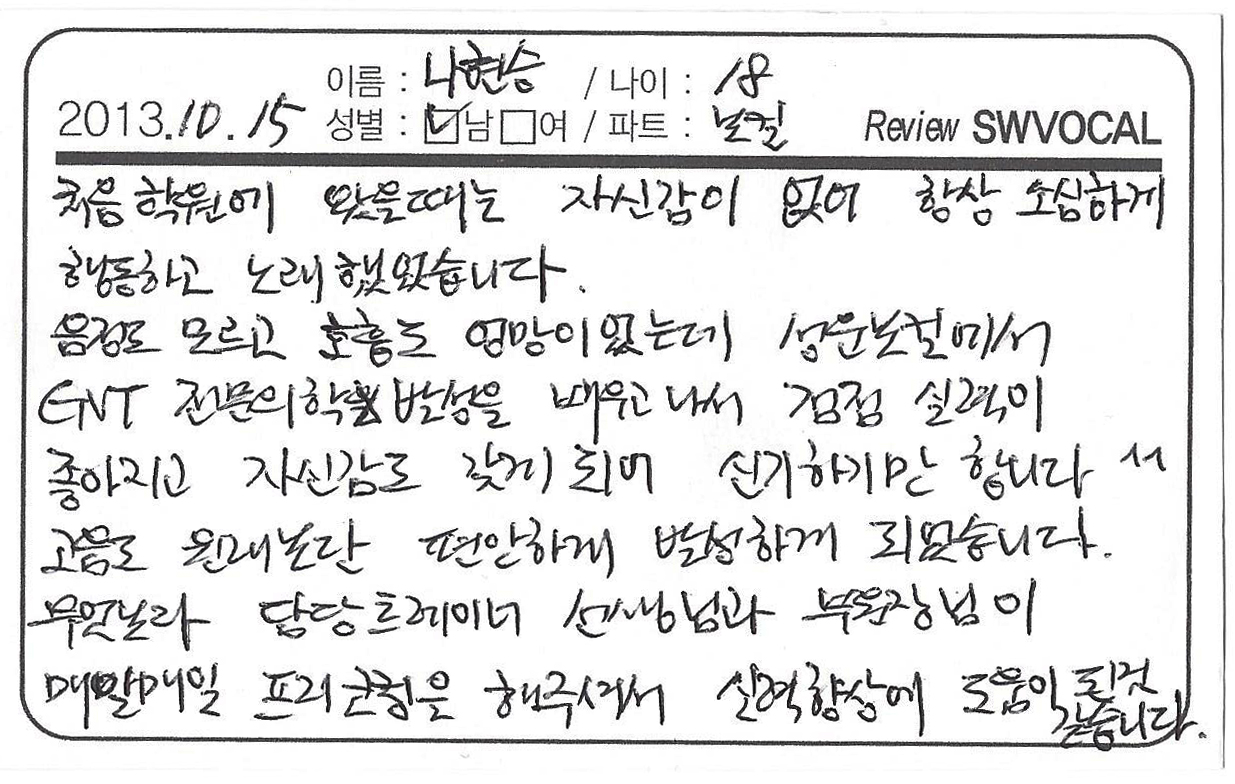 이름 : 나현승 / 나이 : 18
2013.10.15 성별 : ☑남 □여 / 파트 : 보컬 Review SWVOCAL
처음 학원에 왔을때는 자신감이 없어 항상 소심하게
행동하고 노래했었습니다.
음정도 모르고 호흡도 엉망이었는데 성운보컬에서
ENT 전문의학 발성을 배우고 나서 점점 실력이
좋아지고 자신감도 갖게 되어 신기하기만 합니다
고음도 원래보단 편안하게 발성하게 되었습니다.
무엇보다 담당트레이너 선생님과 부원장님이
매일매일 프리코칭을 해주셔서 실력향상에 도움이 된것
같습니다.